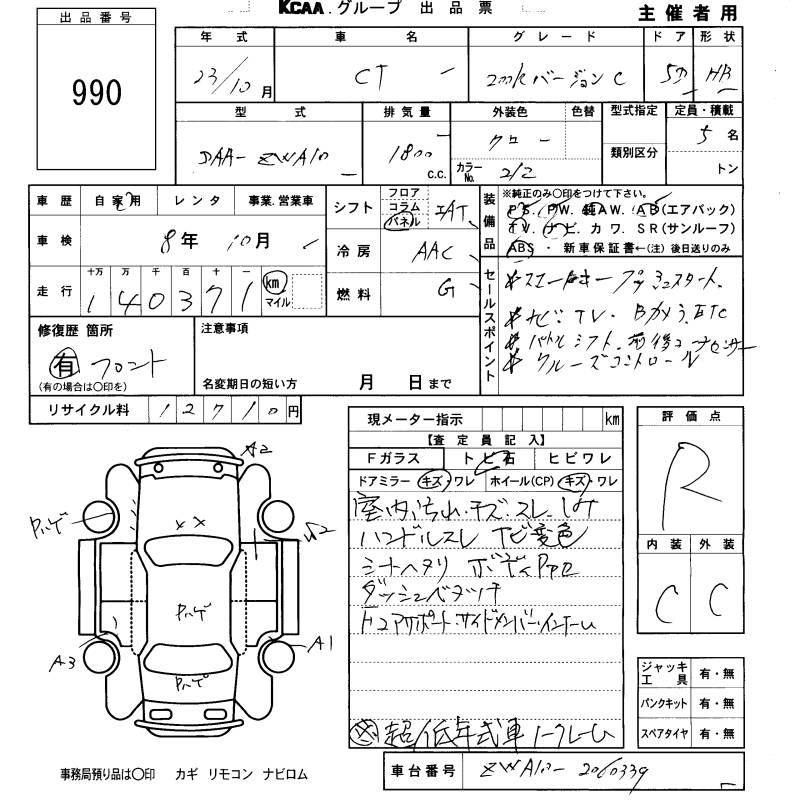 KCAA.グループ 出品票
主催者用
出品番号
990
年式 車名 グレード ドア 形状
23/10月 CT 200h バージョンC 5D HB
型式 排気量 外装色 色替 型式指定 定員・積載
DAA-ZWA10 1800 c.c. クロー カラーNo. 212 類別区分 5名
トン
車歴 自家用 レンタ 事業.営業車
シフト フロア コラム パネル IAT
車検 8年 10月
冷房 AAC
走行 十万 万 千 百 十 一
140371 km マイル
燃料 G
装備品 ※純正のみ〇印をつけて下さい。
P S. P W. 純A W. A B (エアバック)
T V. ナ ビ. カ ワ. S R (サンルーフ)
ABS ・ 新車保証書←(注) 後日送りのみ
セールスポイント
*スマートキー プッシュスタート
*ナビ TV. Bカメラ. ETC
*パドルシフト. 前後コーナセンサー
*クルーズコントロール
修復歴 箇所
有 フロント
(有の場合は〇印を)
注意事項
名変期日の短い方 月 日まで
リサイクル料 12710円
現メーター指示 km
【査定員記入】
Fガラス トビ石 ヒビワレ
ドアミラー キズ・ワレ ホイール(CP) キズ・ワレ
室内汚れ.キズ.スレ.シミ
ハンドルスレ ナビ変色
シートヘタリ
ダッシュベタツキ
コアサポート.サイドメンバー.インナーム
超低年式車 ノークレーム
評価点
R
内装 外装
C C
ジャッキ工具 有・無
パンクキット 有・無
スペアタイヤ 有・無
A2
A3
A1
ハゲ
ハゲ
××
事務局預り品は〇印 カギ リモコン ナビロム
車台番号 ZWA10-2060339